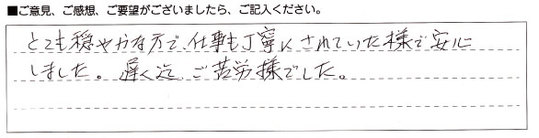 ■ご意見、ご感想、ご要望がございましたら、ご記入ください。
とても穏やかな方で、仕事も丁寧にされていた様で安心
しました。遅く迄、ご苦労様でした。